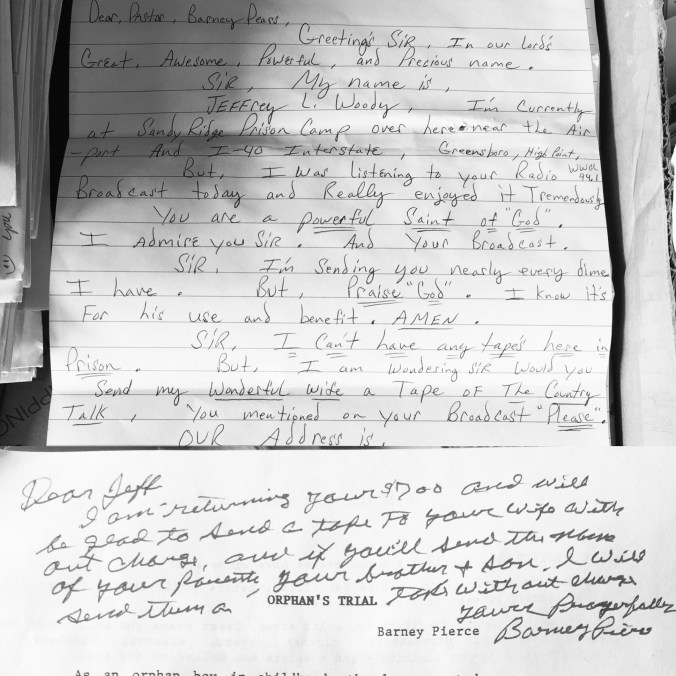 Dear, Pastor, Barney Pears,
Greeting's SiR, In our Lord's
Great, Awesome, Powerful, and Precious name.
SiR, My name is,
JEFFrey L. Woody, I'm Currently
at Sandy Ridge Prison Camp over here near the Air
-port And I-40 Interstate, Greensboro, High Point,
But, I was listening to your Radio
94.1
Broadcast today and Really enjoyed it Tremendously
You are a powerful Saint of "God".
I Admire you SiR. And Your Broadcast.
SiR, I'm Sending you nearly every dime
I have. But, Praise "God". I know it's
For his use and benefit. AMEN.
SiR, I Can't have any tape's here in
Prison. But, I am wondering SiR would you
Send my Wonderful Wife a Tape of The Country
Talk, You mentioned on your Broadcast "Please".
OUR Address is,
Dear Jeff
I am returning your $7.00 and will
be glad to send a tape to your wife with
out charge, and if you'll send the
of your parents, your brother + son, I will
send them a tape without charge
ORPHAN'S TRIAL
yours Prayerfully
Barney Pierce Barney Pierce
As an orphan boy in childhood